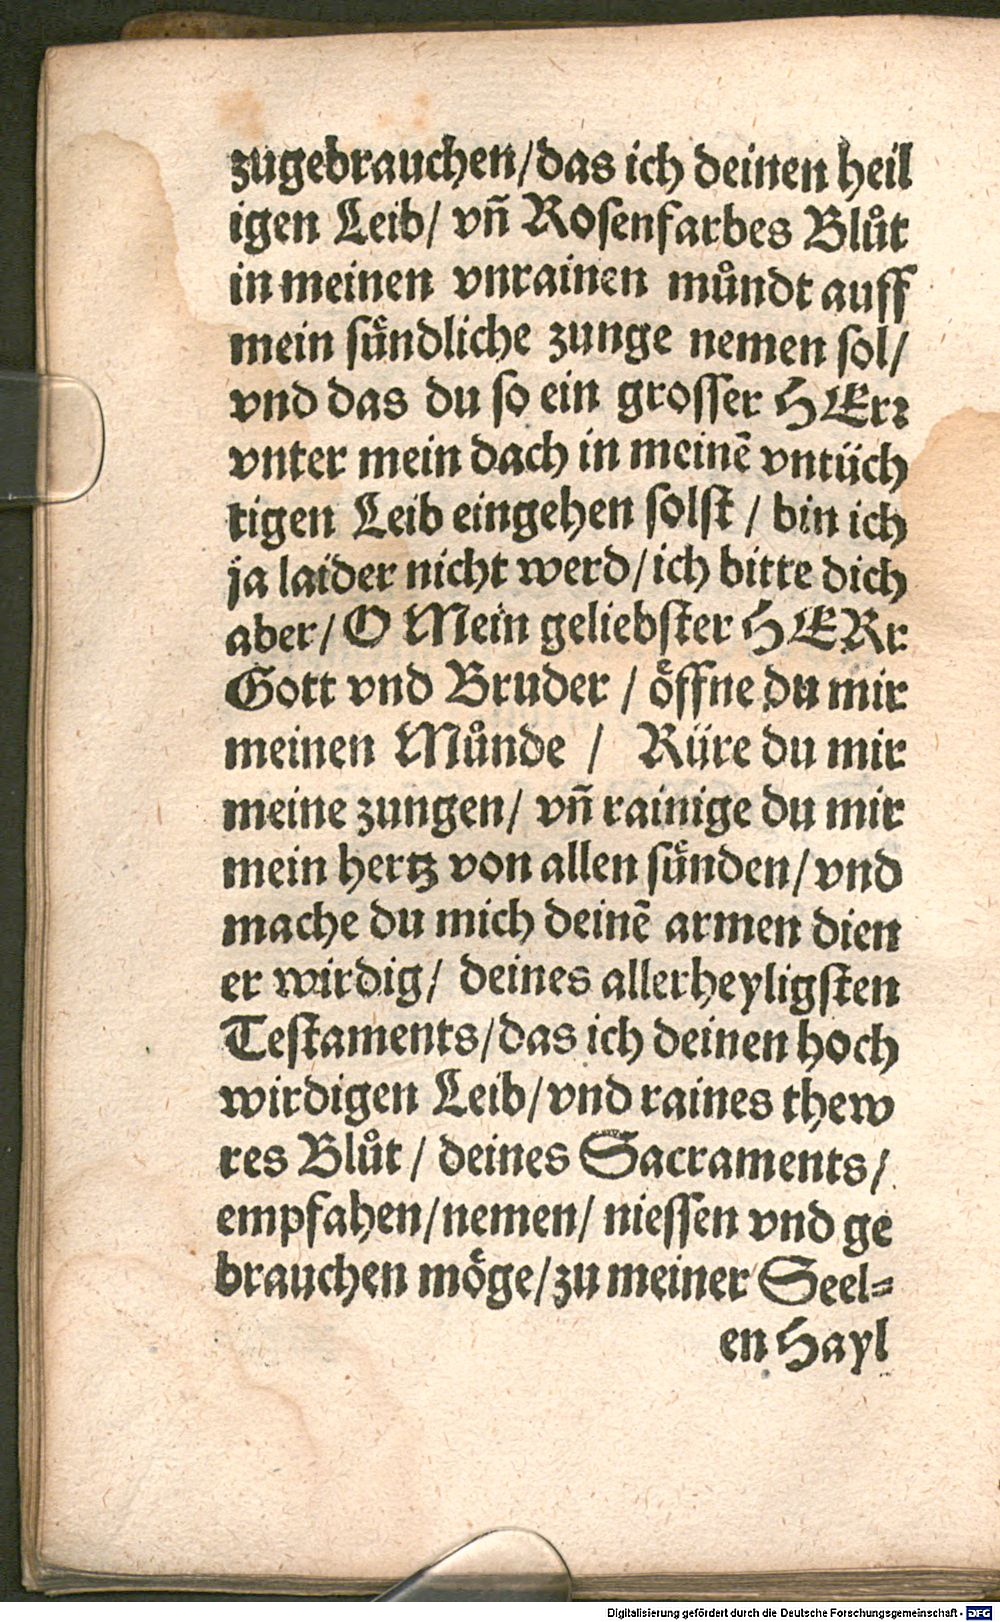 zugebrauchen/das ich deinen heil
igen Leib/ vñ Rosenfarbes Blůt
in meinen vnrainen můndt auff
mein sůndliche zunge nemen sol/
vnd das du so ein grosser HErꝛ
vnter mein dach in meinē vntüch
tigen Leib eingehen solst / bin ich
ja laider nicht werd/ich bitte dich
aber/ O Mein geliebster HERr
Gott vnd Bruder / oͤffne du mir
meinen Můnde / Rüre du mir
meine zungen/ vñ rainige du mir
mein hertz von allen suͤnden/vnd
mache du mich deinē armen dien
er wirdig/ deines allerheyligsten
Testaments/das ich deinen hoch
wirdigen Leib/vnd raines thew
res Blůt / deines Sacraments/
empfahen/nemen/ niessen vnd ge
brauchen moͤge/zu meiner Seel⸗
en Hayl
Digitalisierung gefördert durch die Deutsche Forschungsgemeinschaft - DFG